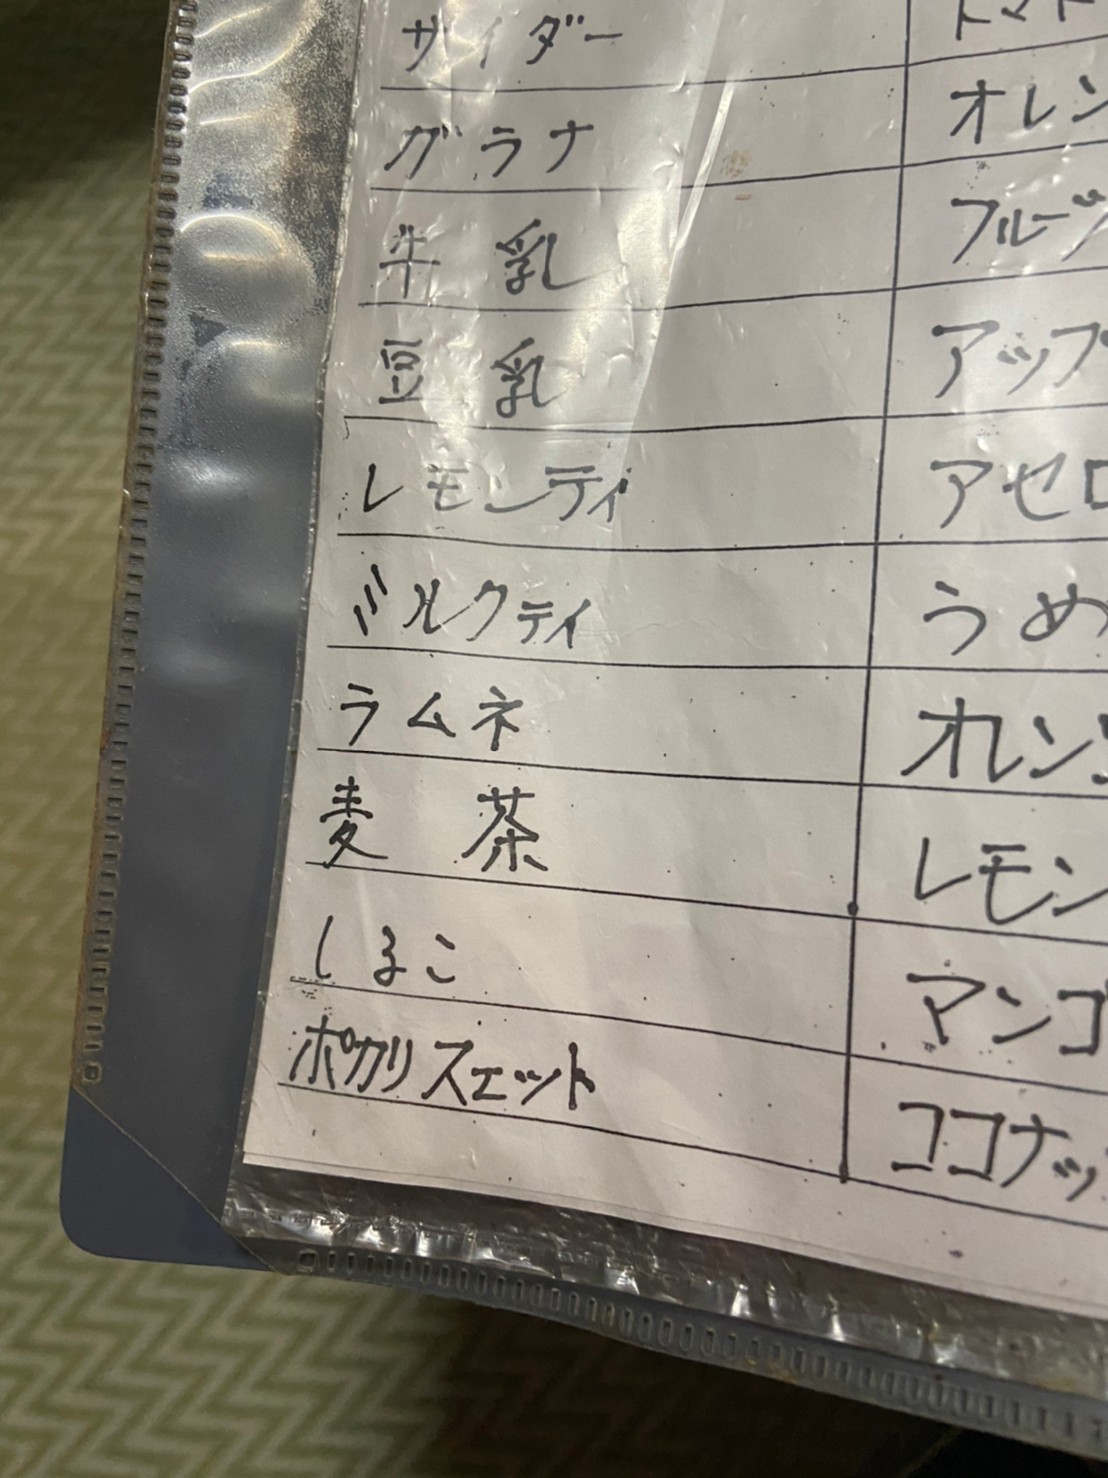 サイダー
トマト
グラナ
オレン
牛乳
フルーツ
豆乳
アップ
レモンティ
アセロ
ミルクティ
うめ
ラムネ
オレンジ
麦茶
レモン
しるこ
マンゴ
ポカリスエット
ココナッ